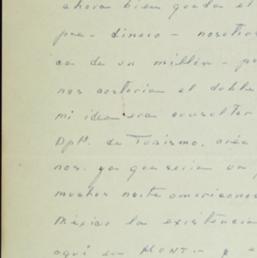 ahora bien queda el
pue- dinero - nosotros
ca de un millón - po
nos costaria el doble
mi idea era consultar
Dpto. de Turismo,
nos. ya que seria un p
muchos norte americanos
México la existencia
aquí en MONT y e